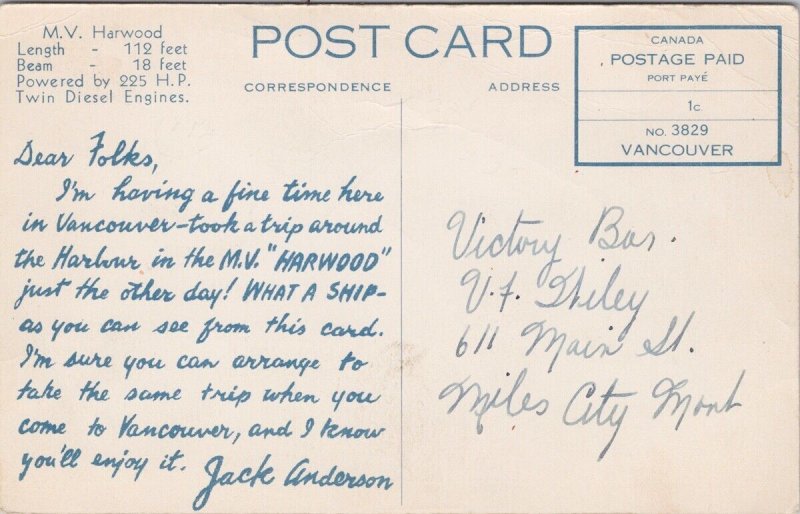 M.V. Harwood
Length - 112 feet
Beam - 18 feet
Powered by 225 H.P.
Twin Diesel Engines.
POST CARD
CORRESPONDENCE
ADDRESS
CANADA
POSTAGE PAID
PORT PAYÉ
1c
NO. 3829
VANCOUVER
Dear Folks,
I'm having a fine time here
in Vancouver-took a trip around
the Harbour in the M.V. "HARWOOD"
just the other day! WHAT A SHIP-
as you can see from this card.
I'm sure you can arrange to
take the same trip when you
come to Vancouver, and I know
you'll enjoy it. Jack Anderson
Victory Bar.
V.F.
611 Main St.
Miles City Mont